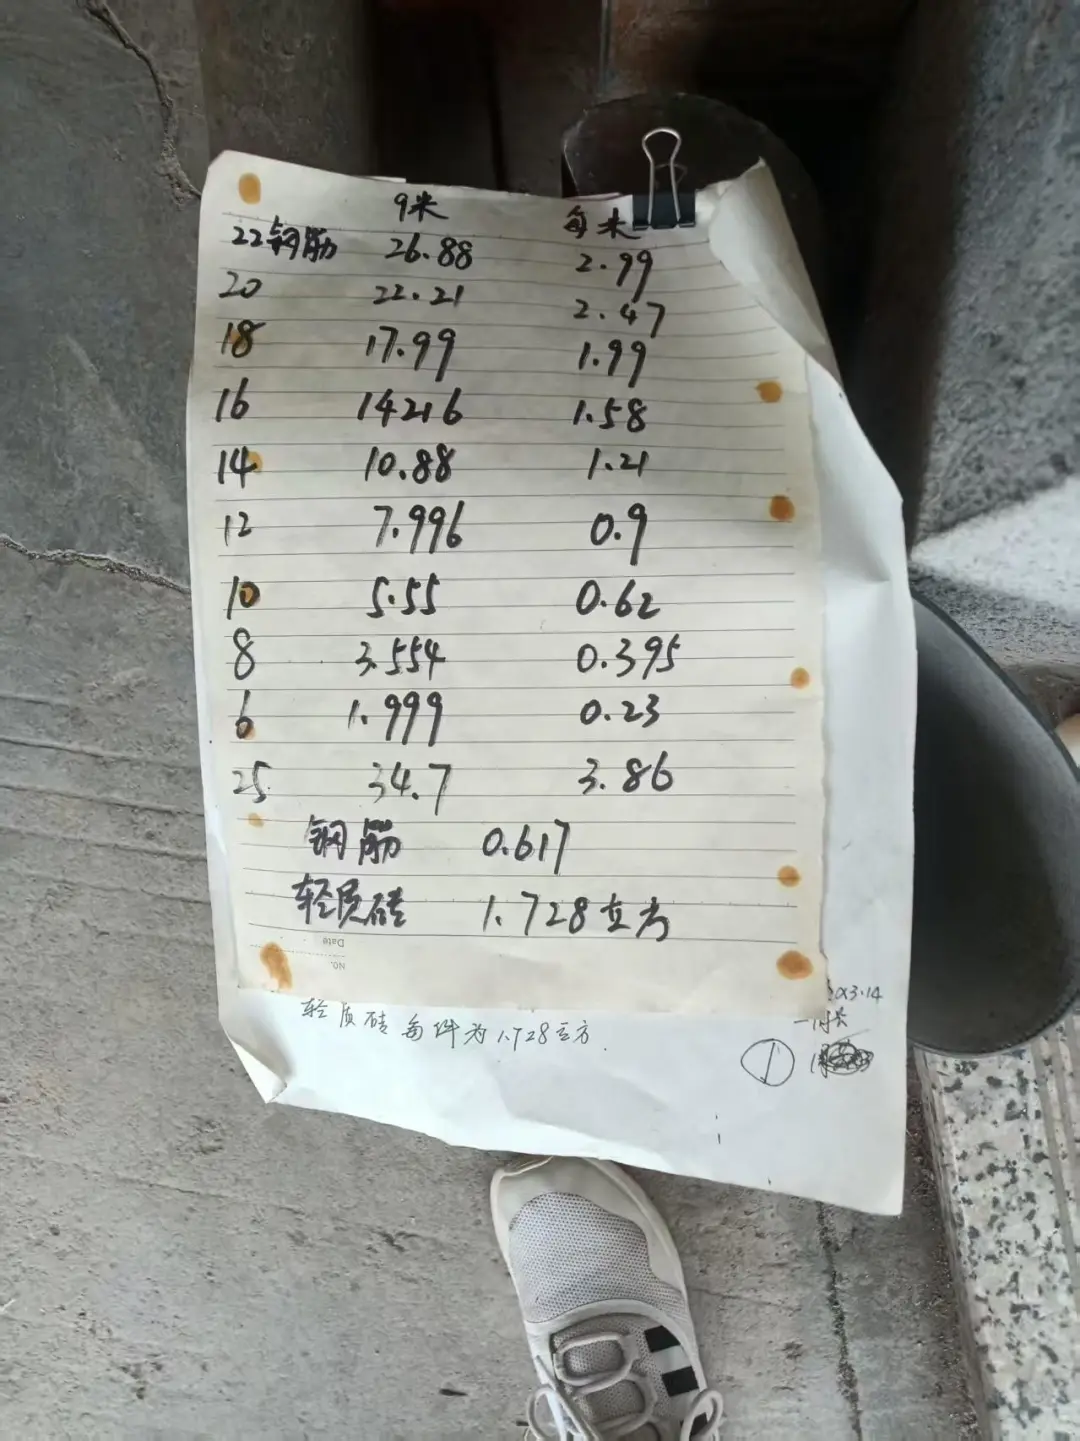 9米 每米
22钢筋 26.88 2.99
20 22.21 2.47
18 17.99 1.99
16 14216 1.58
14 10.88 1.21
12 7.996 0.9
10 5.55 0.62
8 3.554 0.395
6 1.999 0.23
25 34.7 3.86
钢筋 0.617
轻质砖 1.728立方
Date
NO.
轻质砖每件为1.728立方
3.14